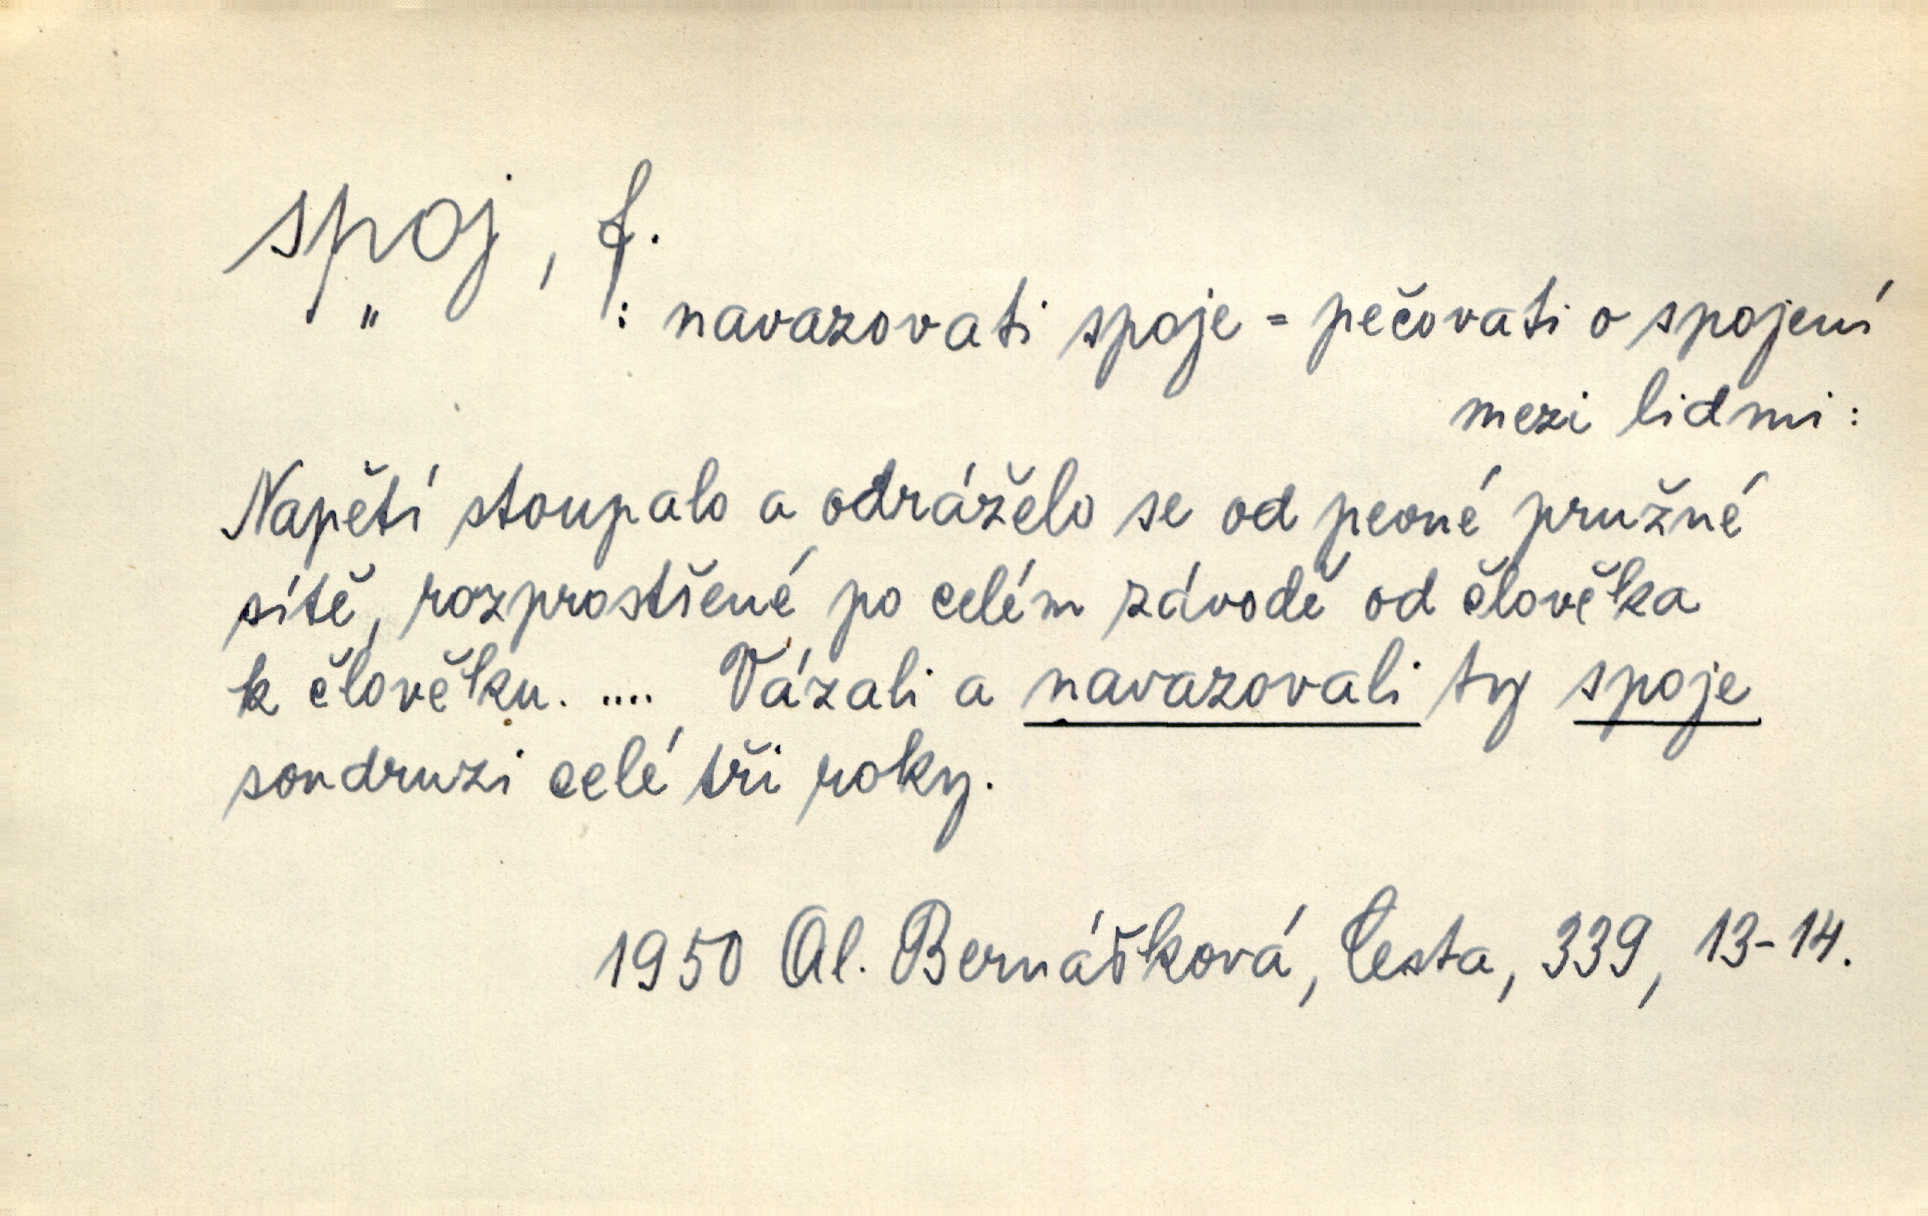 spoj, f.
" : navazovati spoje = pečovati o spojení
mezi lidmi:
Napětí stoupalo a odráželo se od pevné pružné
sítě, rozprostřené po celém závodě od člověka
k člověku. .... Vázali a navazovali ty spoje
soudruzi celé tři roky.
1950 Al. Bernášková, Cesta, 339, 13-14.